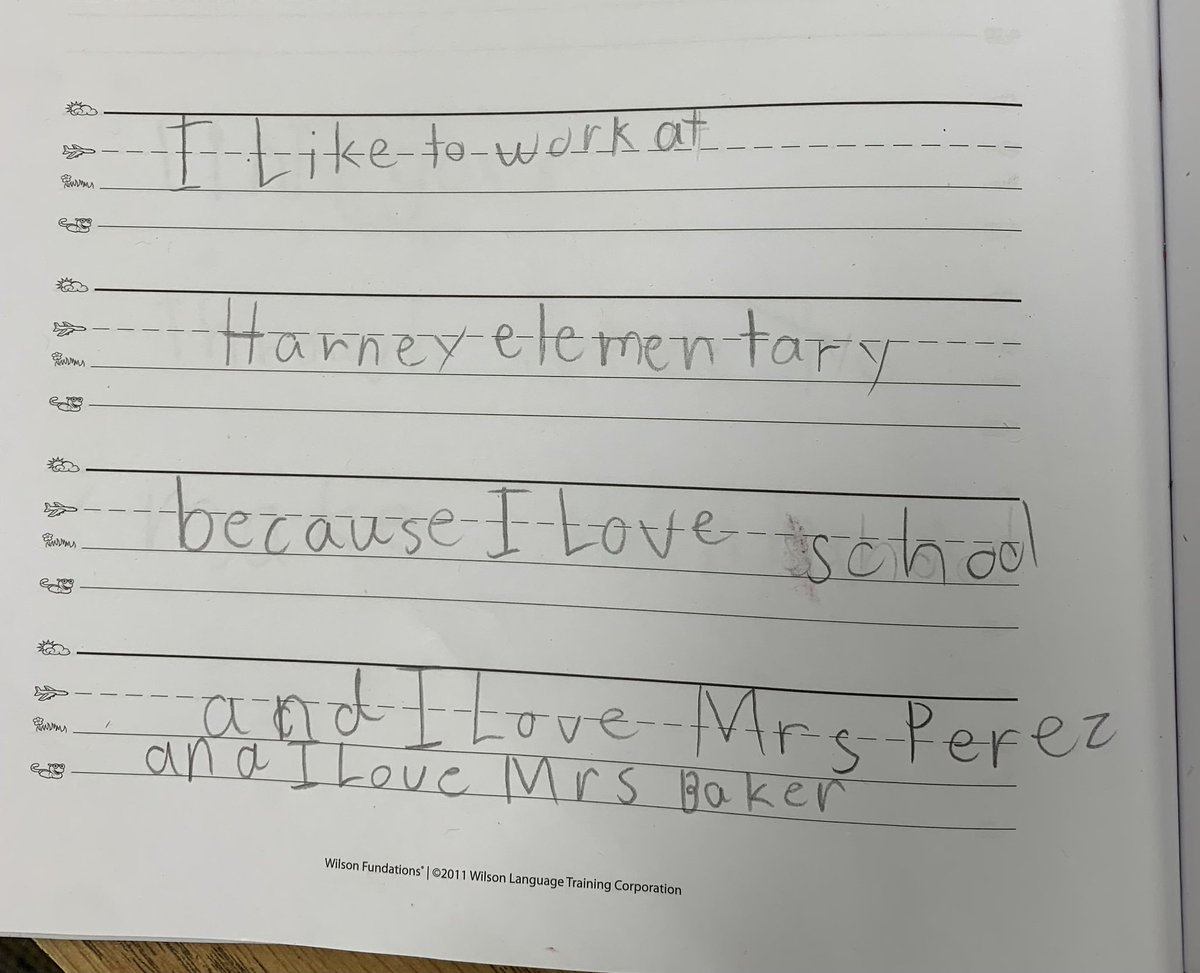 I Like to work at
Harney elementary
because I Love school
and I Love Mrs Perez
and I Love Mrs Baker
Wilson Fundations® | ©2011 Wilson Language Training Corporation